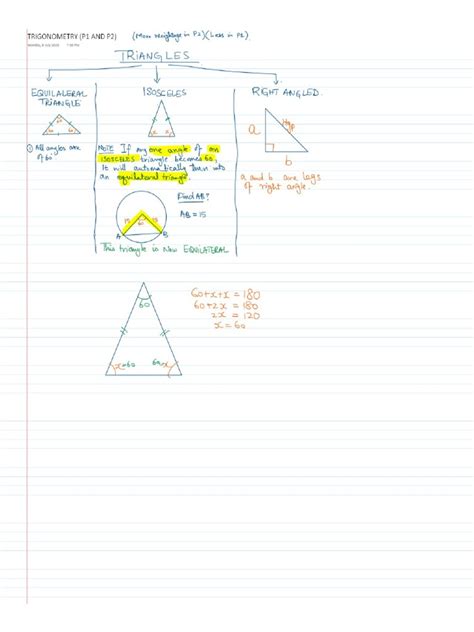 TRIGONOMETRY (P1 AND P2)
(More weightage in P2)(Less in P1)
7:00 PM
TRIANGLES
EQUILALERAL
TRIANGLE
60
60 60
① All angles are
of 60
ISOSCELES
x x
NOTE: If any one angle of an
ISOSCELES triangle becomes 60,
It will automatically turn into
an equilateral triangle.
Find AB?
AB = 15
15 60 15
A B
This triangle is Now EQUILATERAL
RIGHT ANGLED.
a
Hyp
b
a and b are legs
of right angle.
60
x=60 60=x
60+x+x = 180
60+2x = 180
2x = 120
x = 60